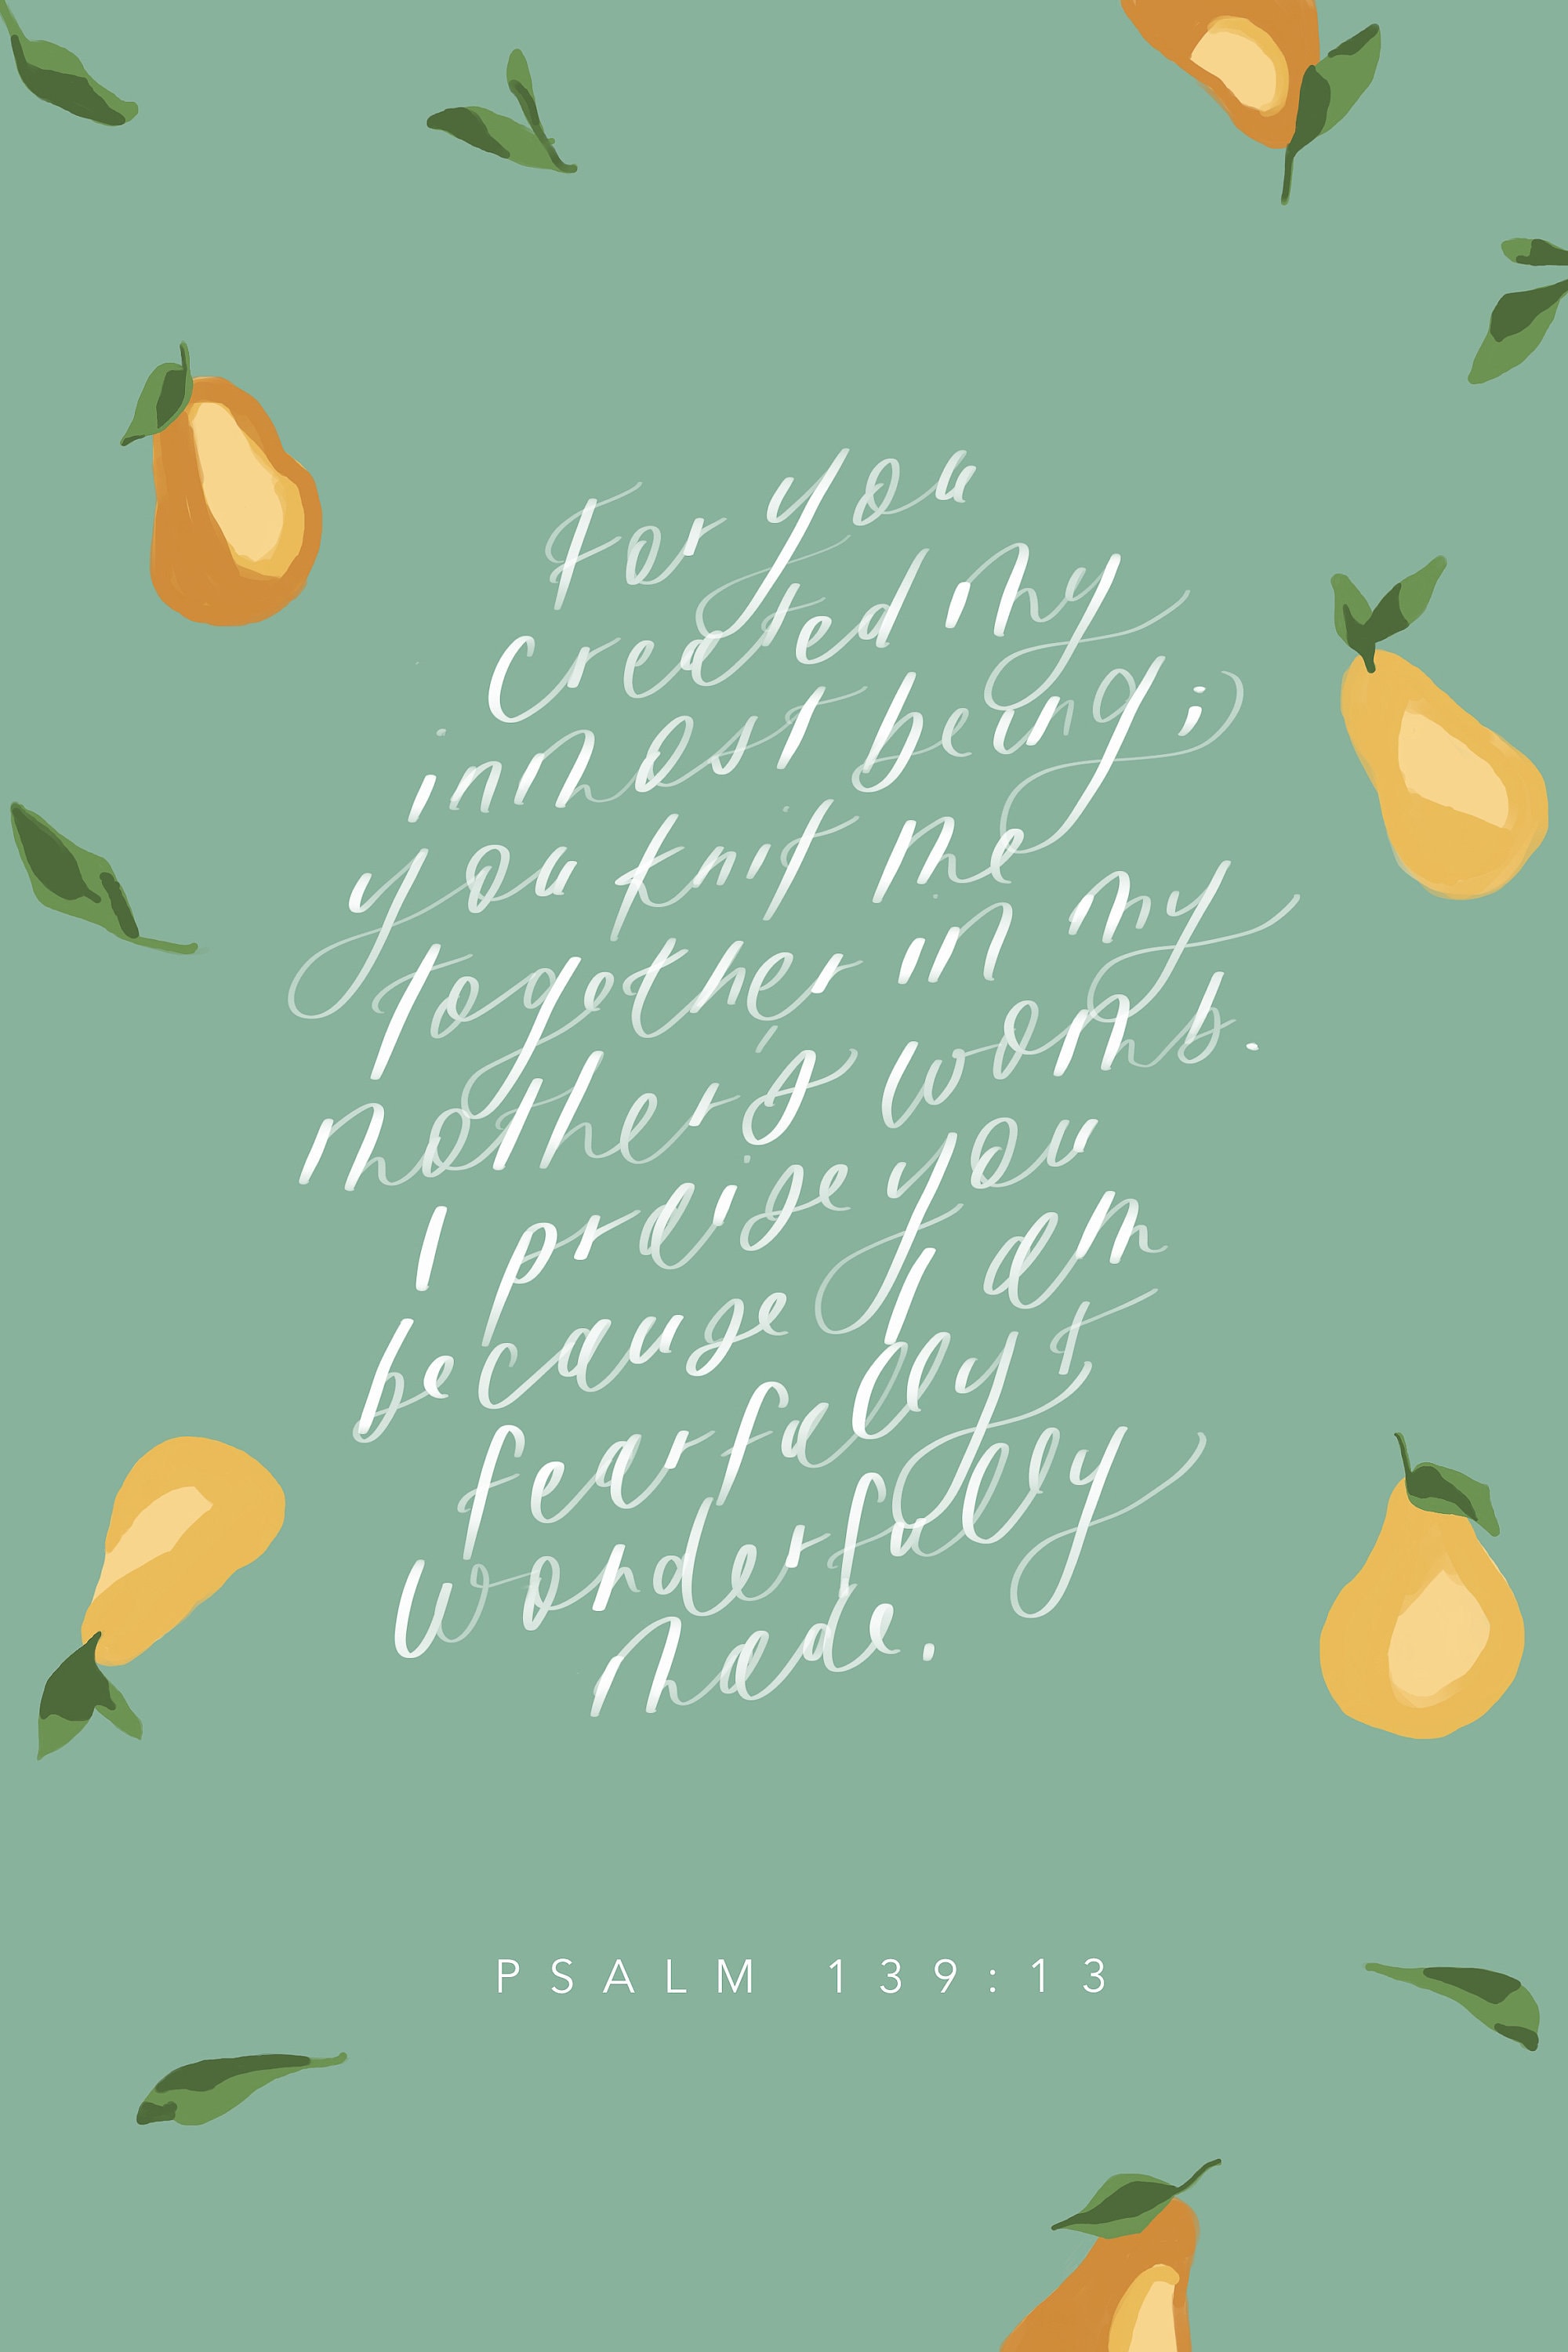 For you
created my
inmost being;
you knit me
together in my
mother's womb.
I praise you
because I am
fearfully &
wonderfully
made.
PSALM 139:13